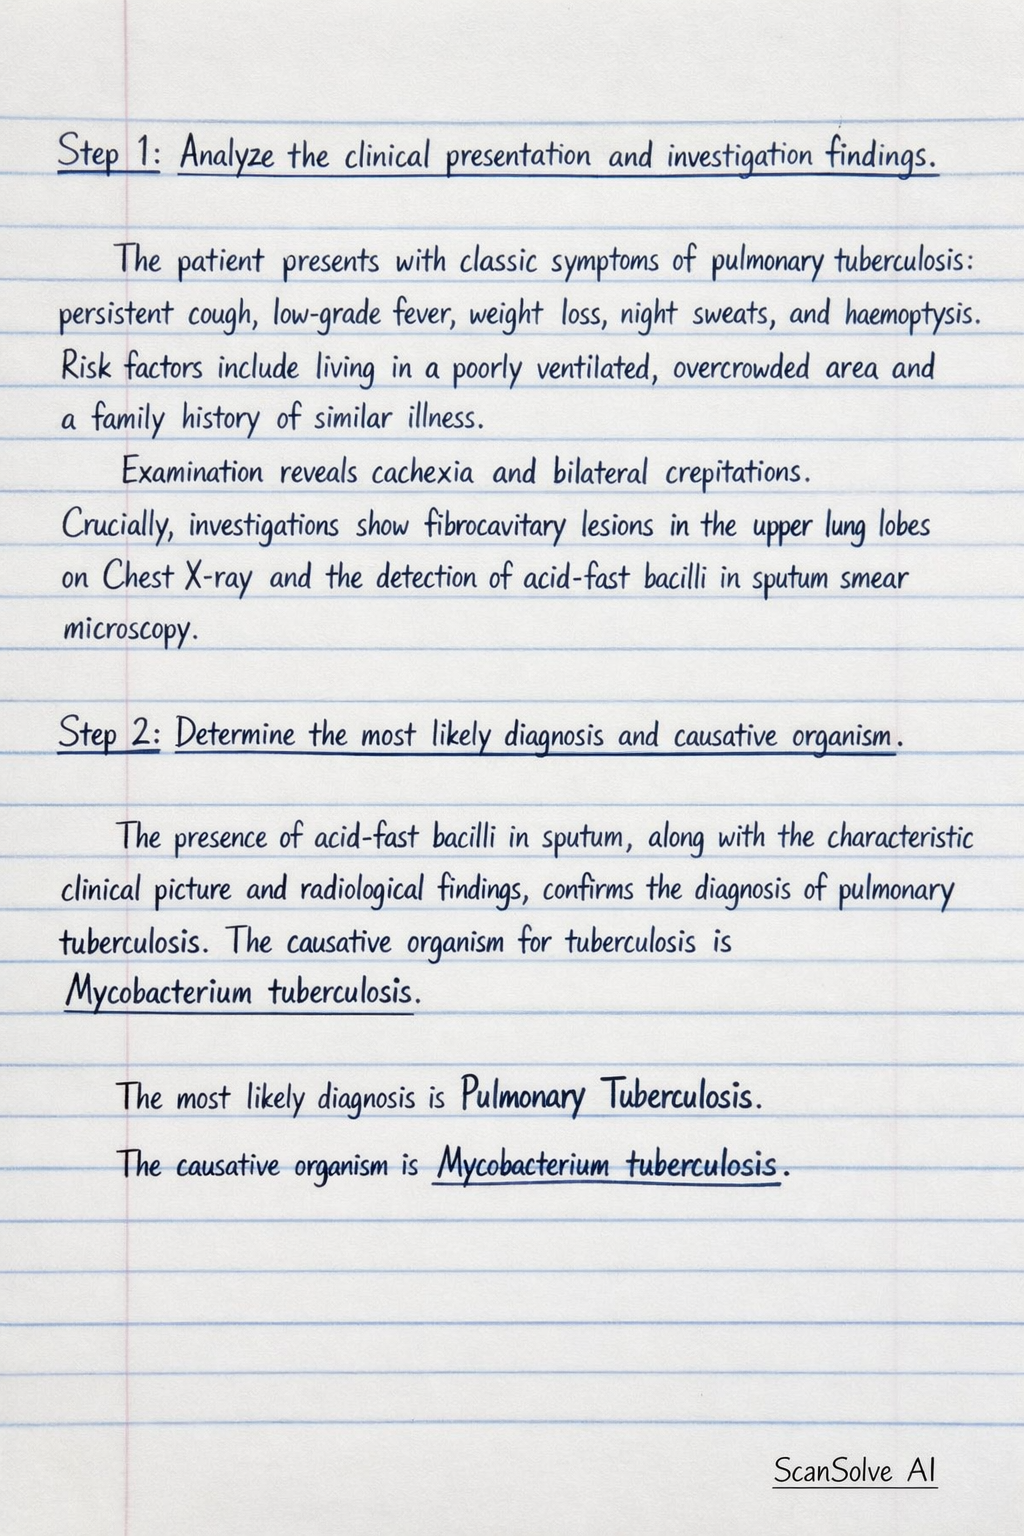 Step 1: Analyze the clinical presentation and investigation findings.
The patient presents with classic symptoms of pulmonary tuberculosis:
persistent cough, low-grade fever, weight loss, night sweats, and haemoptysis.
Risk factors include living in a poorly ventilated, overcrowded area and
a family history of similar illness.
Examination reveals cachexia and bilateral crepitations.
Crucially, investigations show fibrocavitary lesions in the upper lung lobes
on Chest X-ray and the detection of acid-fast bacilli in sputum smear
microscopy.
Step 2: Determine the most likely diagnosis and causative organism.
The presence of acid-fast bacilli in sputum, along with the characteristic
clinical picture and radiological findings, confirms the diagnosis of pulmonary
tuberculosis. The causative organism for tuberculosis is
Mycobacterium tuberculosis.
The most likely diagnosis is Pulmonary Tuberculosis.
The causative organism is Mycobacterium tuberculosis.
ScanSolve AI